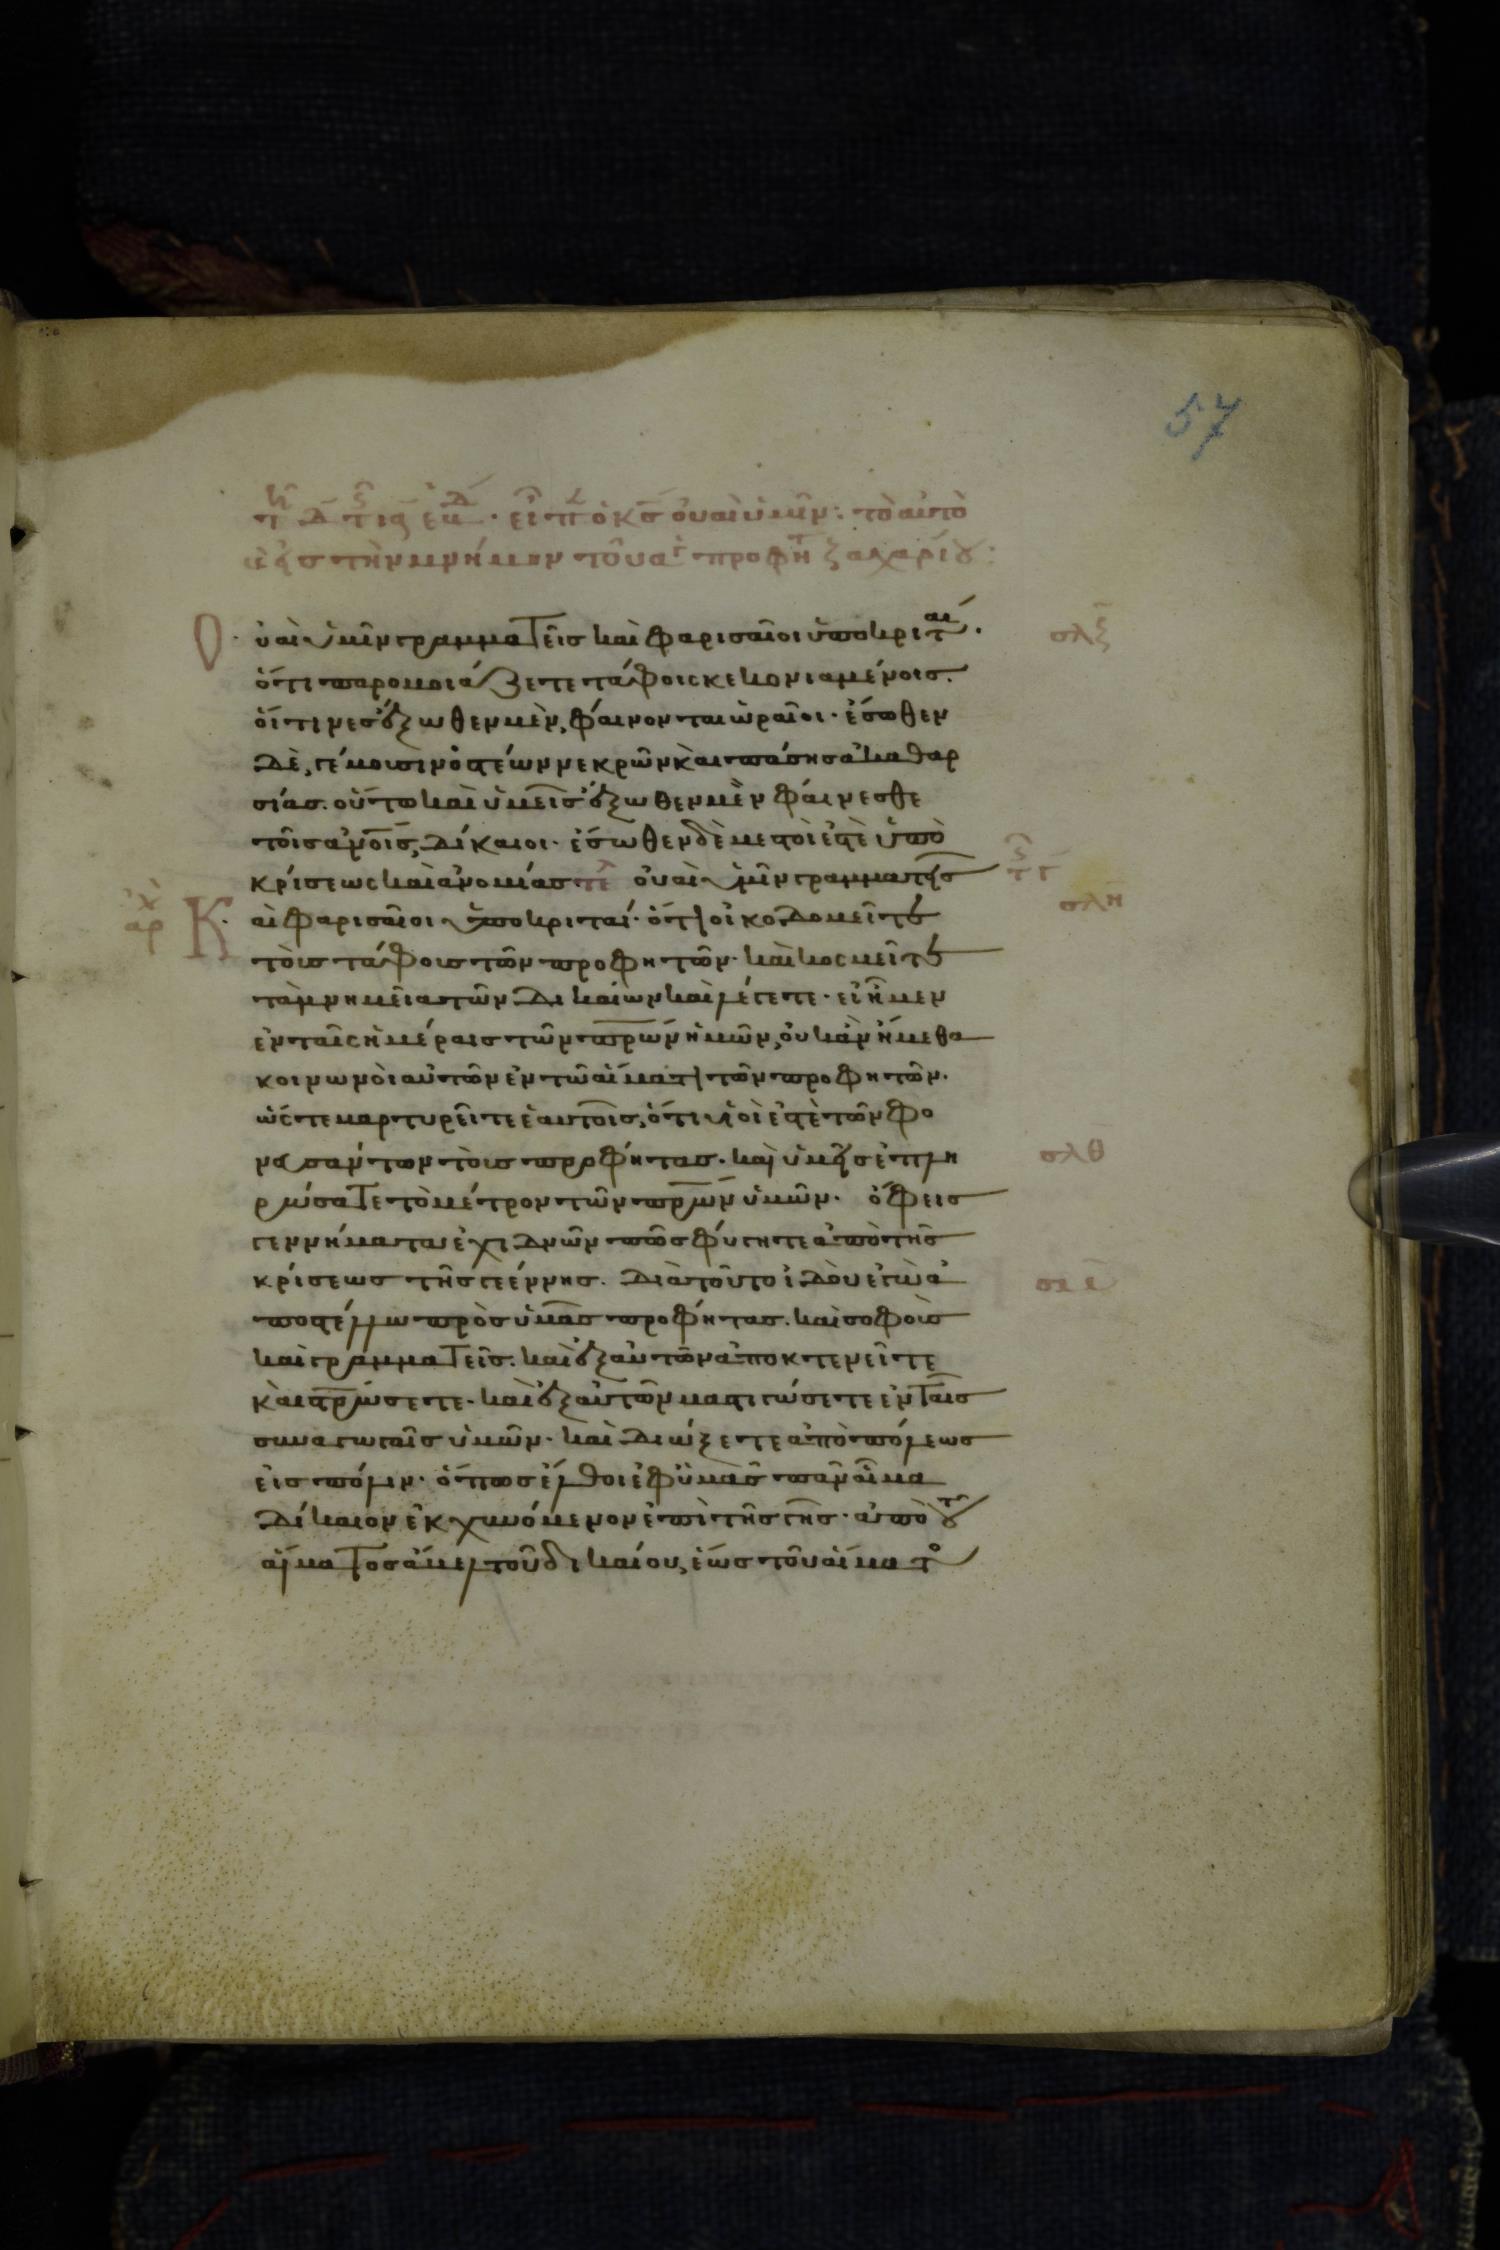 57
εἰπ ὁ κς οὐαὶ ὑμῖν: τὸ αὐτὸ
τὴν μνήμην τοῦ αγ προφη ζαχαρίου:
Οὐαὶ ὑμῖν γραμματεῖς καὶ φαρισαῖοι ὑποκριταί.
ὅτι παρομοιάζετε τάφοις κεκονιαμένοις.
οἵτινες ἔξωθεν μὲν, φαίνονται ὡραῖοι· ἔσωθεν
δὲ, γέμουσιν ὀστέων νεκρῶν καὶ πάσης ἀκαθαρ
σίας. οὕτω καὶ ὑμεῖς ἔξωθεν μὲν φαίνεσθε
τοῖς ἀνοις, δίκαιοι· ἔσωθεν δὲ μεστοί ἐστὲ ὑπο
κρίσεως καὶ ἀνομίας οὐαὶ ὑμῖν γραμματεῖς
Καὶ φαρισαῖοι ὑποκριταί· ὅτι οἰκοδομεῖτε
τοὺς τάφους τῶν προφητῶν· καὶ κοσμεῖτε
τὰ μνημεῖα τῶν δικαίων καὶ λέγετε· εἰ ἦμεν
ἐν ταῖς ἡμέραις τῶν πρων ἡμῶν, οὐκ ἂν ἤμεθα
κοινωνοὶ αὐτῶν ἐν τῶ αἵματι τῶν προφητῶν.
ὥστε μαρτυρεῖτε ἑαυτοῖς, ὅτι υἱοί ἐστὲ τῶν φο
νευσάντων τοὺς προφήτας. καὶ ὑμεῖς ἐπλη
ρώσατε τὸ μέτρον τῶν πρων ὑμῶν. ὄφεις
γεννήματα ἐχιδνῶν πῶς φύγητε ἀπὸ τῆς
κρίσεως τῆς γεέννης. διὰ τοῦτο ἰδοὺ ἐγὼ ἀ
ποστέλλω πρὸς ὑμᾶς προφήτας. καὶ σοφοὺς
καὶ γραμματεῖς. καὶ ἐξ αὐτῶν ἀποκτενεῖτε
καὶ στρώσετε. καὶ ἐξ αὐτῶν μαστιγώσετε ἐν ταῖς
συναγωγαῖς ὑμῶν. καὶ διώξετε ἀπὸ πόλεως
εἰς πόλιν. ὅπως ἔλθοι ἐφ ὑμᾶς πᾶν αἷμα
δίκαιον ἐκχυνόμενον ἐπὶ τῆς γῆς. ἀπὸ τοῦ
αἵματος ἄβελ τοῦ δικαίου, ἕως τοῦ αἵματο
σλη
σλθ